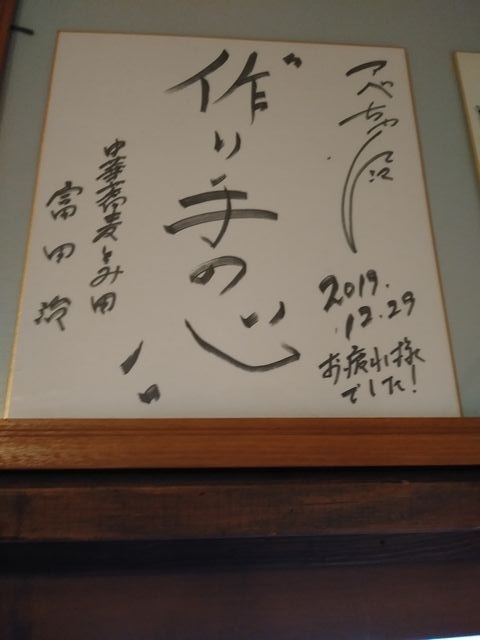 アベちゃん江
2019.
12.29
お疲れ様
でした!
作り手の心
!
中華蕎麦とみ田
富田治